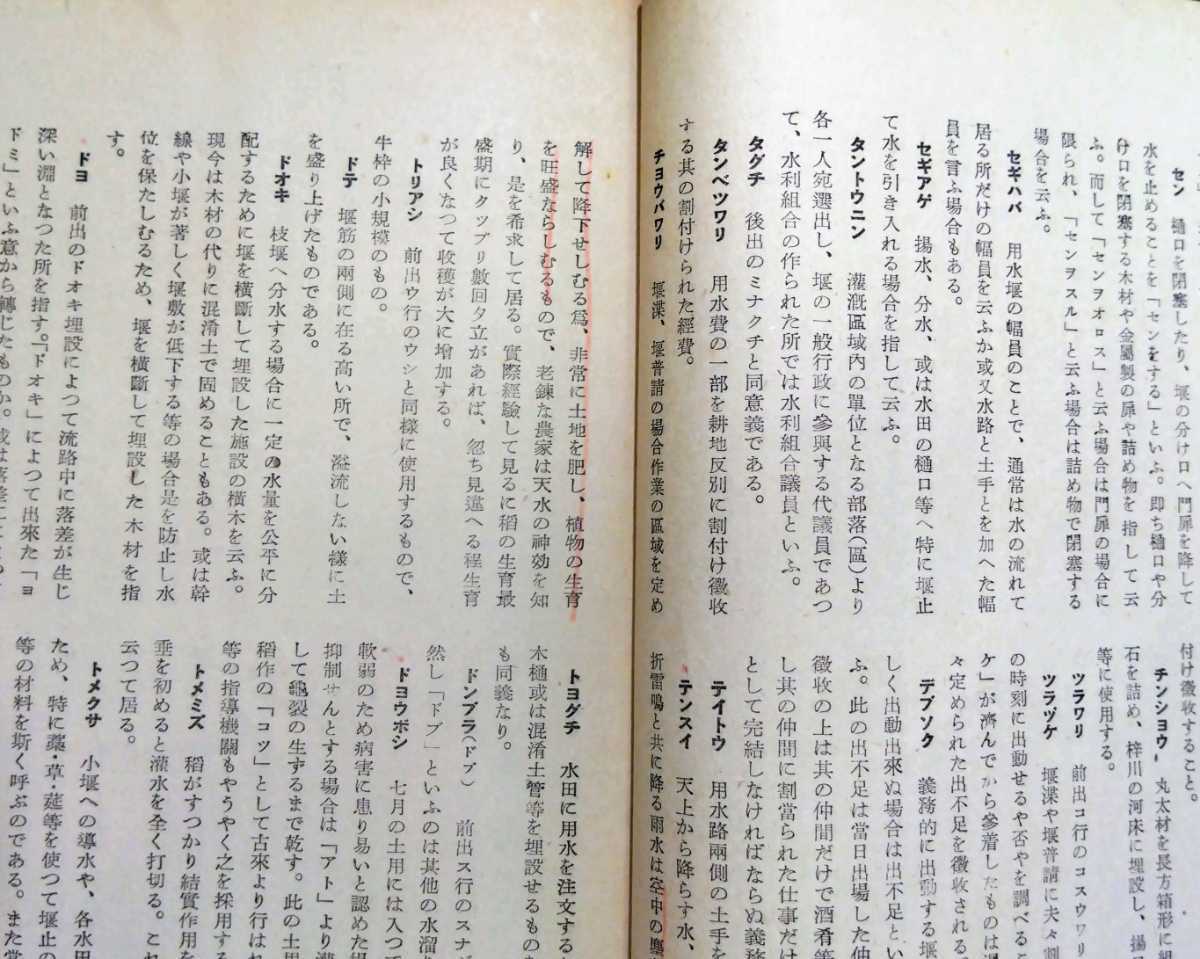 セン　樋口を閉塞したり、堰の分け口へ門扉を降して
水を止めることを「センをする」といふ。即ち樋口や分
け口を閉塞する木材や金屬製の扉や詰め物を指して云
ふ。而して「センヲオロス」と云ふ場合は門扉の場合に
限られ、「センヲスル」と云ふ場合は詰め物で閉塞する
場合を云ふ。
セギハバ　用水堰の幅員のことで、通常は水の流れて
居る所だけの幅員を云ふか或又水路と土手とを加へた幅
員を言ふ場合もある。
セギアゲ　揚水、分水、或は水田の樋口等へ特に堰止
て水を引き入れる場合を指して云ふ。
タントウニン　灌漑區域內の單位となる部落（區）より
各一人宛選出し、堰の一般行政に參與する代議員であつ
て、水利組合の作られた所では水利組合議員といふ。
タグチ　後出のミナクチと同意義である。
タンベツワリ　用水費の一部を耕地反別に割付け徵收
する其の割付けられた經費。
チョウバワリ　堰渫、堰普請の場合作業の區域を定め
付け徵收すること。
チンショウ　丸太材を長方箱形に組
石を詰め、梓川の河床に埋設し、揚
等に使用する。
ツラワリ　前出コ行のコスウワリ
ツラヅケ　堰渫や堰普請に夫々割
の時刻に出動せるや否やを調べるこ
ケ」が濟んでから參着したものは遲
々定められた出不足を徵收される
デブソク　義務的に出動する堰
しく出動出來ぬ場合は出不足とい
ふ。此の出不足は當日出場した仲
徵收の上は其の仲間だけで酒肴等
し其の仲間に割當られた仕事だけ
として完結しなければならぬ義務
テイトウ　用水路兩側の土手を
テンスイ　天上から降らす水、
折雷鳴と共に降る雨水は空中の塵
解して降下せしむる爲、非常に土地を肥し、植物の生育
を旺盛ならしむるもので、老鍊な農家は天水の神効を知
り、是を希求して居る。實際經驗して見るに稻の生育最
盛期にタツプリ數回夕立があれば、忽ち見違へる程生育
が良くなつて收穫が大に增加する。
トリアシ　前出ウ行のウシと同樣に使用するもので、
牛枠の小規模のもの。
ドテ　堰筋の兩側に在る高い所で、溢流しない樣に土
を盛り上げたものである。
ドオキ　枝堰へ分水する場合に一定の水量を公平に分
配するために堰を橫斷して埋設した施設の橫木を云ふ。
現今は木材の代りに混淆土で固めることもある。或は幹
線や小堰が著しく堰敷が低下する等の場合是を防止し水
位を保たしむるため、堰を橫斷して埋設した木材を指
す。
ドヨ　前出のドオキ埋設によつて流路中に落差が生じ
深い淵となつた所を指す。「ドオキ」によつて出來た「ヨ
ドミ」といふ意から轉じたものか。或は落差に
トヨグチ　水田に用水を注文する
木樋或は混淆土管等を埋設せるもの
も同義なり。
ドンブラ（ドブ）　前出ス行のスナ
然し「ドブ」といふのは其他の水溜り
ドヨウボシ　七月の土用には入つて
軟弱のため病害に患り易いと認めた場
抑制せんとする場合は「アト」より灌
して龜裂の生ずるまで乾す。此の土用
稻作の「コツ」として古來より行は
等の指導機關もやうやく之を採用す
トメミズ　稻がすつかり結實作用を
垂を初めると灌水を全く打切る。これ
云つて居る。
トメクサ　小堰への導水や、各水田
ため、特に藁・草・莚等を使つて堰止の
等の材料を斯く呼ぶのである。また